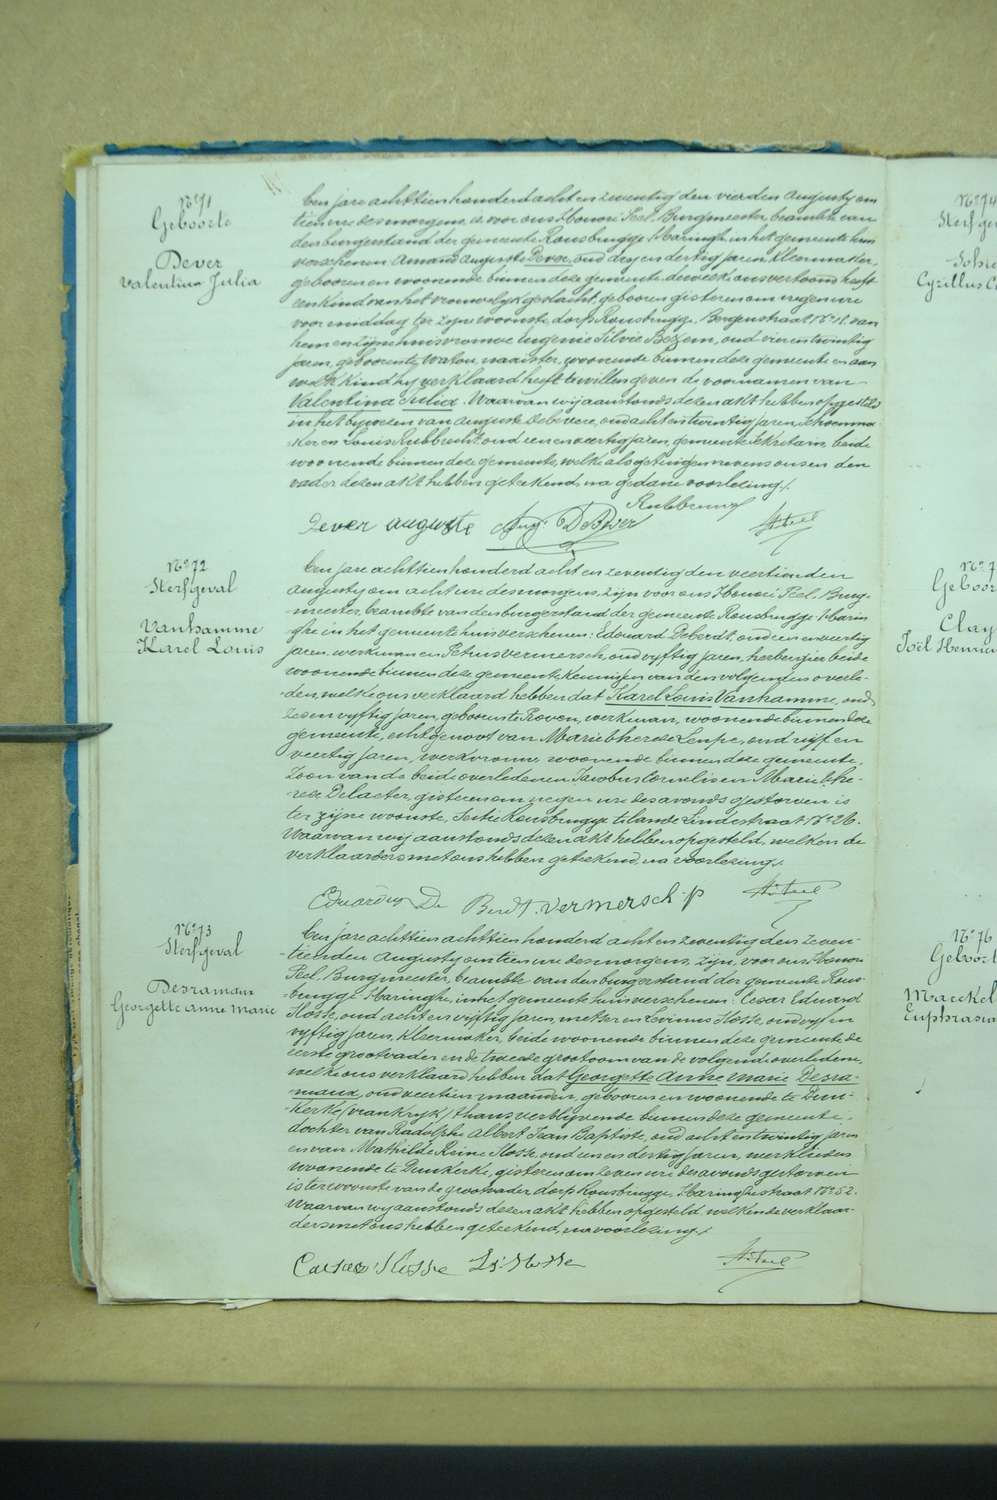 N° 71
Geboorte
Dever
Valentina Julia
Ten jare achttien honderd acht en zeventig den vierden Augusty om
tien ure des morgens, is voor ons Honoré Peel, Burgmeester, beambte van
den burgerstand der gemeente Rousbrugge Haringhe, in het gemeente huis
verschenen Amand Auguste Dever, oud dry en dertig jaren, kleermaker,
geboren en woonende binnen deze gemeente, dewelke ons vertoond heeft
een kind van het vrouwelyk geslacht, geboren gisteren om negen ure
voor middag ter zyne woonste, dorp Rousbrugge, Bergenstraat N° 18, van
hem en zyne huisvrouwe Eugenie Silvie Bezem, oud vier en twintig
jaren, geboren te Watou, naaister, woonende binnen deze gemeente en aan
welk kind hy verklaard heeft te willen geven de voornamen van
Valentina Julia. Waarvan wy aanstonds dezen akt hebben opgesteld
in het bywezen van Auguste Debevere, oud acht en twintig jaren, schoenma-
ker en Louis Rubbrecht, oud een en veertig jaren, gemeente sekretaris, beide
woonende binnen deze gemeente, welke als getuigen nevens ons en den
vader dezen akt hebben geteekend, na gedane voorlezing.
Dever auguste Aug. DeBever
N° 72
Sterfgeval
Vanhamme
Karel Louis
Ten jare achttien honderd acht en zeventig den veertienden
Augusty om acht ure des morgens, zyn voor ons Honoré Peel, Burg-
meester, beambte van den burgerstand der gemeente Rousbrugge Harin-
ghe in het gemeente huis verschenen: Edouard Deberdt, oud een en veertig
jaren, werkman en Petrus Vermersch, oud vyftig jaren, herbergier beide
woonende binnen deze gemeente, kennissen van den volgenden overle-
den, welke ons verklaard hebben dat Karel Louis Vanhamme, oud
zeven vyftig jaren, geboren te Proven, werkman, woonende binnen deze
gemeente, echtgenoot van Marie Therese Lenpe, oud vyf en
veertig jaren, werkvrouw, woonende binnen deze gemeente,
zoon van de beide overledenen Jacobus Cornelis en Marie The-
rese Delaeter, gisteren om negen ure des avonds gestorven is
ter zyne woonste, Sectie Rousbrugge te lande Lindestraat N° 26.
Waarvan wy aanstonds dezen akt hebben opgesteld, welken de
verklaarders met ons hebben geteekend, na voorlezing.
Eduardus De Berdt. vermersch. p
N° 73
Sterfgeval
Desramaux
Georgette Anne Marie
Ten jare achttien achttien honderd acht en zeventig den zeven-
tienden Augusty om tien ure des morgens, zyn, voor ons Honoré
Peel, Burgmeester, beambte van den burgerstand der gemeente Rous-
brugge Haringhe, in het gemeente huis verschenen: Cesar Eduard
Hosse, oud acht en vyftig jaren, metser en Louis Hosse, oud vyf en
vyftig jaren, kleermaker, beide woonende binnen deze gemeente de
eerste grootvader en de tweede grootoom van de volgende overledene,
welke ons verklaard hebben dat Georgette Anne Marie Desra-
maux, oud veertien maanden, geboren en woonende te Duin-
kerke (Frankryk) thans verblyvende binnen deze gemeente,
dochter van Radolphe Albert Jean Baptiste, oud acht en twintig jaren
en van Mathilde Reine Hosse, oud een en dertig jaren, werklieden
woonende te Duinkerke, gisteren om zeven ure des avonds gestorven
is ter woonste van de grootvader, dorp Rousbrugge, Haringhestraat N° 52.
Waarvan wy aanstonds dezen akt hebben opgesteld welken de verklaar-
ders met ons hebben geteekend, na voorlezing.
Caesar Hosse Ls. Hosse
N° 74
Cyrillus
Geboor
Clay
Joël Henri
N° 76
Geboort
Maeckel
Euphrasia